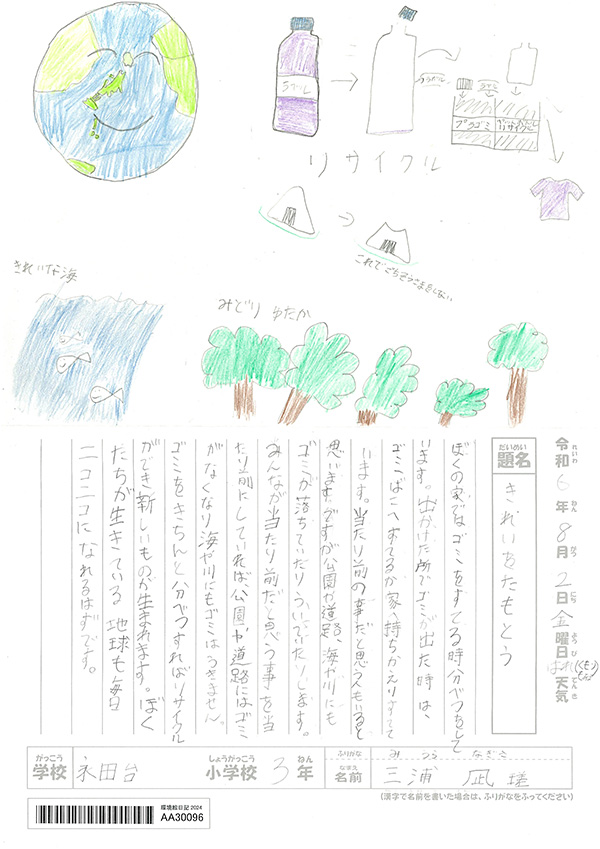 ラベル
ラベル
プラゴミ
リサイクル
これでごちそうさまをしない
きれいな海
みどり ゆたか
令和6年8月2日金曜日
れいわ ねん がつ にち ようび
はれ
天気
てんき
だいめい
題名
きれいをたもとう
ぼくの家ではゴミをすてる時分べつをして
います。出かけた所でゴミが出た時は、
ゴミばこへすてるか家へ持ちかえりすてて
います。当たり前の事だと思う人もいると
思います。ですが公園や道路、海や川にも
ゴミが落ちていたりういていたりします。
みんなが当たり前だと思う事を当
たり前にしていれば、公園や道路にはゴミ
がなくなり海や川にもゴミはうきません。
ゴミをきちんと分べつすればリサイクル
ができ新しいものが生まれます。ぼく
たちが生きている地球も毎日
ニコニコになれるはずです。
がっこう
学校
永田台
しょうがっこう
小学校
3年
ねん
ふりがな
みうら なぎさ
なまえ
名前
三浦 凪瑳
(漢字で名前を書いた場合は、ふりがなをふってください)
環境絵日記 2024
AA30096